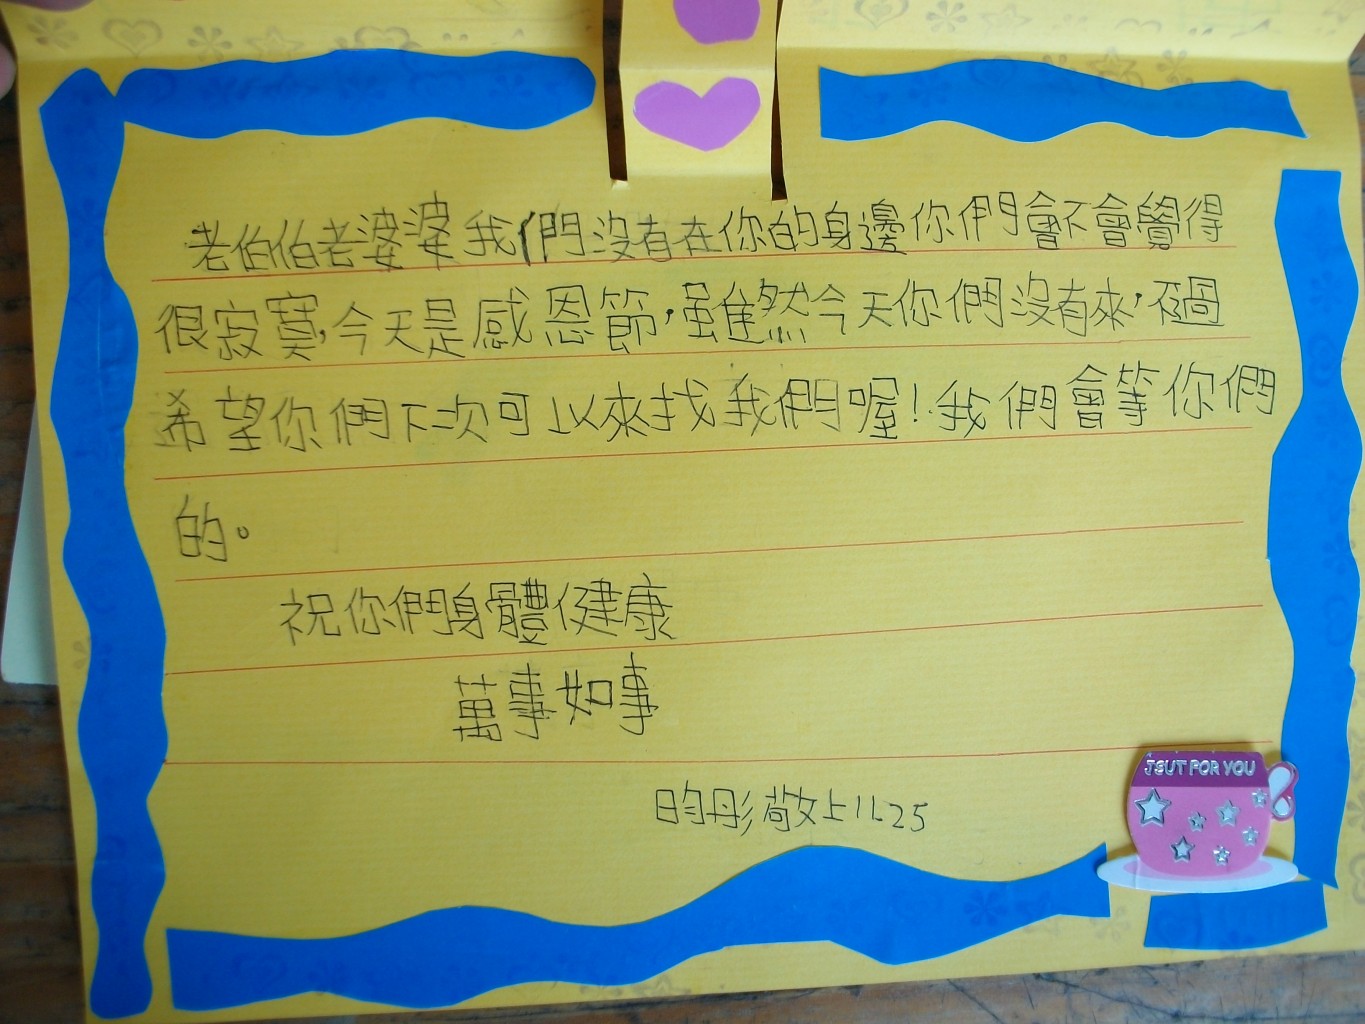 老伯伯老婆婆我們沒有在你的身邊你們會不會覺得
很寂寞,今天是感恩節,雖然今天你們沒有來,不過
希望你們下次可以來找我們喔!我們會等你們
的。
祝你們身體健康
萬事如事
昀彤敬上11.25
JSUT FOR YOU